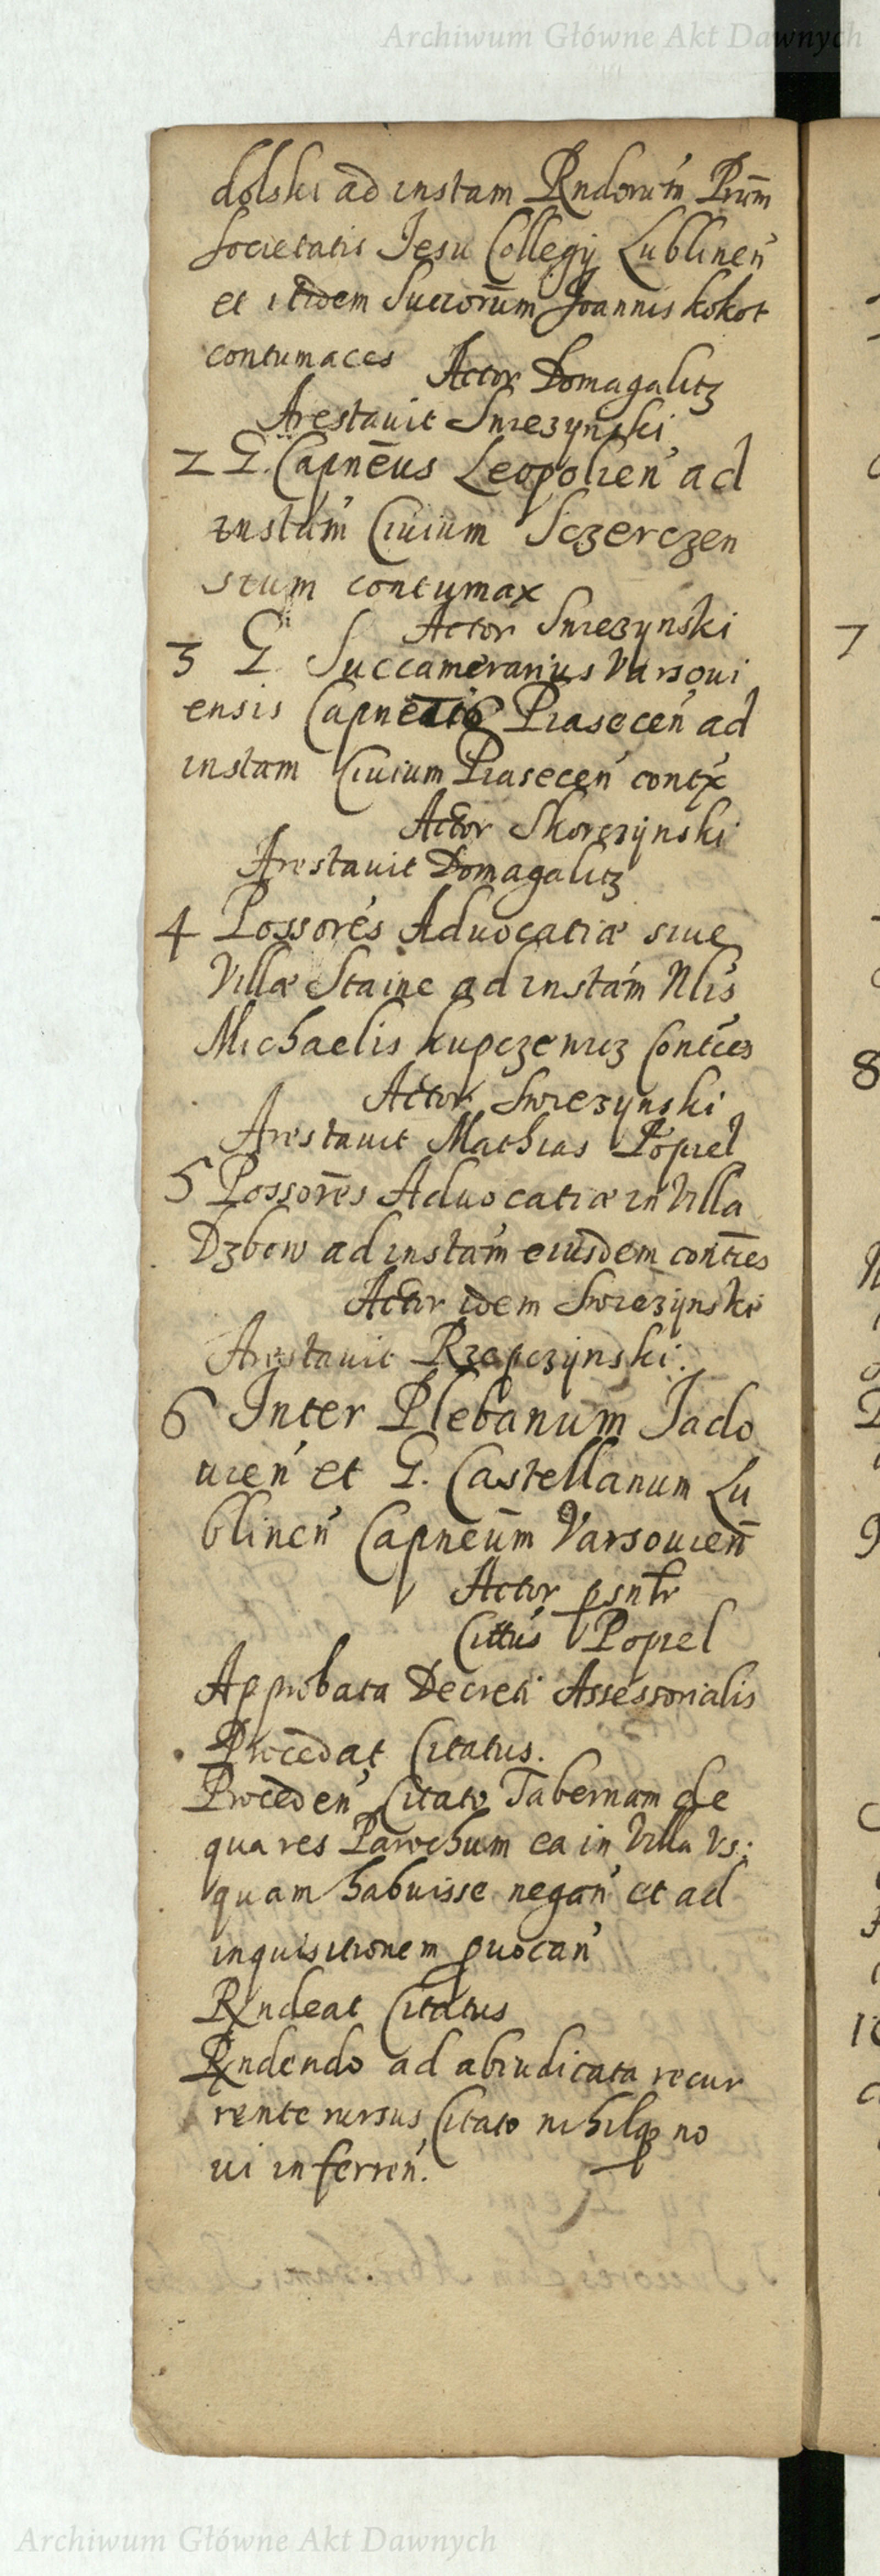 Archiwum Główne Akt Dawnych
dolski ad instam Rndorum Prum
Societatis Jesu Collegij Lublinen
et itidem Succorum Joannis Kokot
contumaces Actor Domagalitz
Arestauit Swiezynski
2 G. Capneus Leopolien ad
instam Ciuium Sczerczen
sium contumax
Actor Swiezynski
3 G. Succamerarius Varsoui
ensis Capne Piasecen ad
instam Ciuium Piasecen contx
Actor Skorczynski
Arestauit Domagalitz
4 Possores Aduocatiæ siue
Villæ Staine ad instam Nlis
Michaelis Kupczewicz Contces
Actor Swiezynski
Arestauit Mathias Popiel
5 Possores Aduocatiæ in Villa
Dzbow ad instam eiusdem contces
Actor idem Swiezynski
Arestauit Rzepczynski.
6 Inter Plebanum Jado
uien et G. Castellanum Lu
blinen Capneum Varsouien
Actor psntr
Cittus Popiel
Approbata Decreti Assessorialis
Procedat Citatus.
Proceden Citato Tabernam de
qua res Parochum ea in Villa Vs:
quam habuisse negan et ad
inquisitionem puocan
Rndeat Citatus
Rndendo ad abiudicata recur
rente rursus Citato nihilq no
ui inferren.
7
8
9
10
Archiwum Główne Akt Dawnych